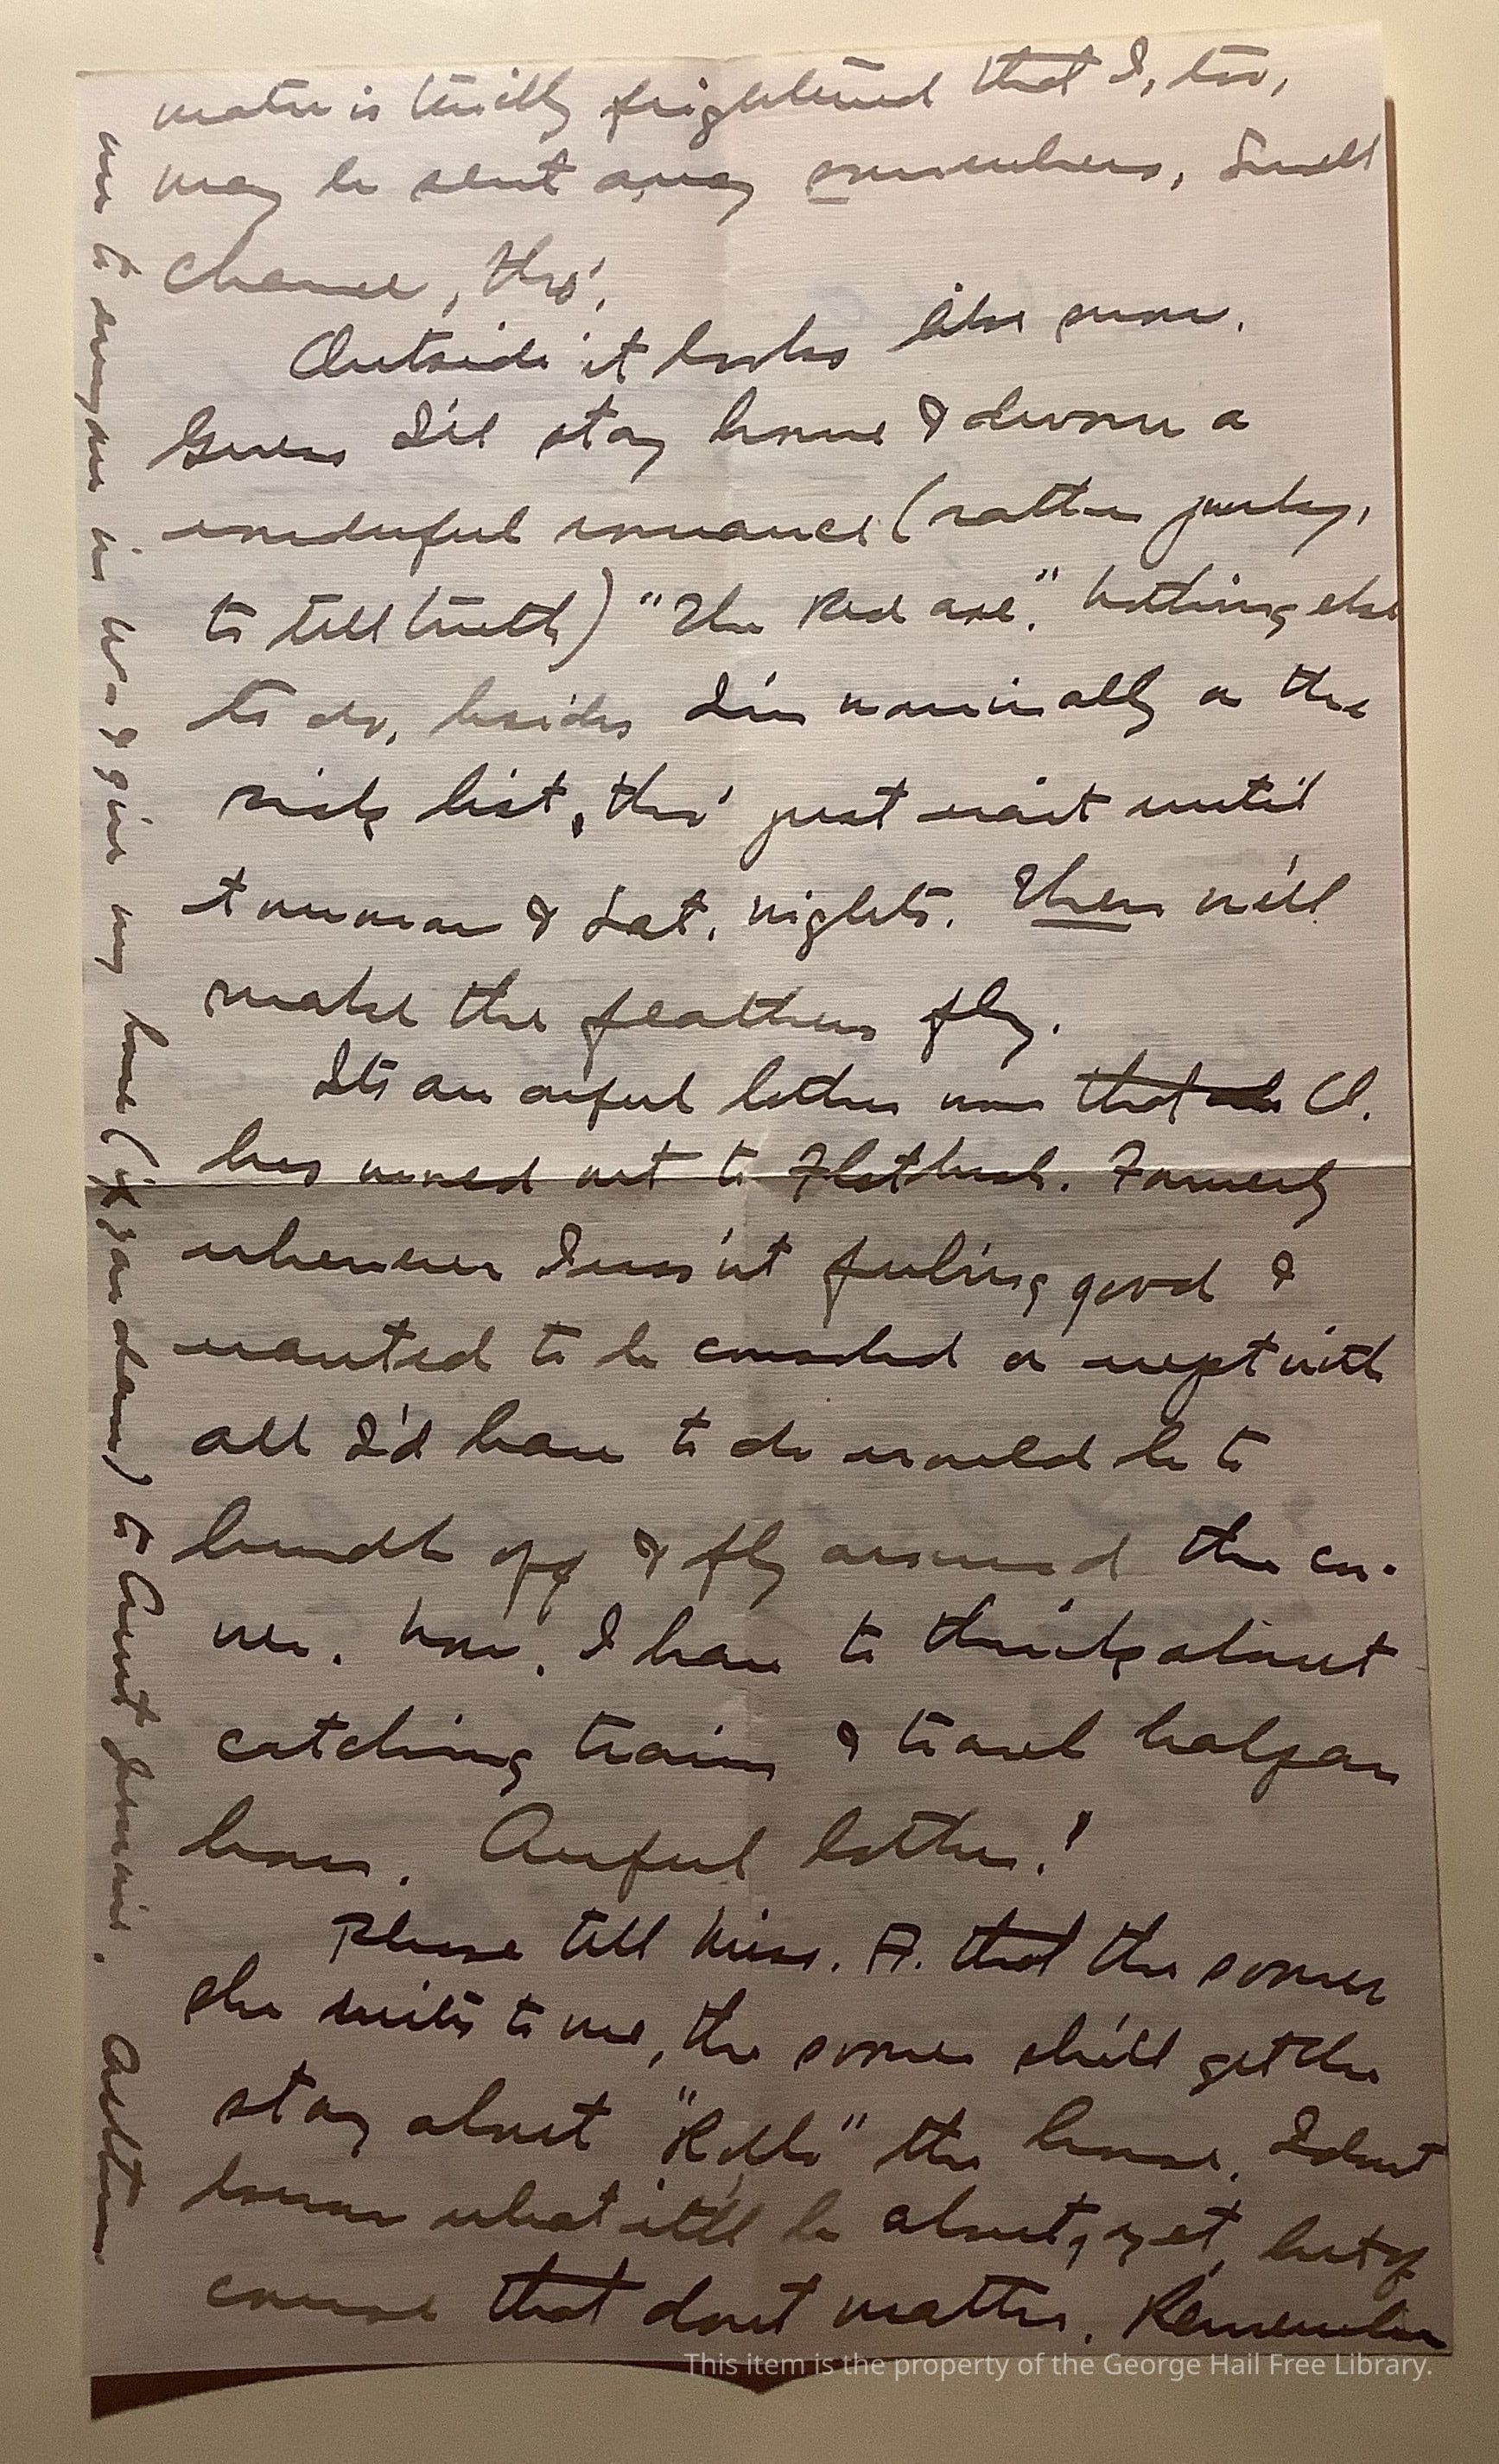 mater is terribly frightened that I, too,
may be sent away somewhere, Small
chance, tho'.
Outside it looks like snow.
Guess I'll stay home & devour a
wonderful romance (rather punky,
to tell truth) "The Red axe." Nothing else
to do, besides I'm nominally on the
sick list, tho' just wait until
tomorrow & Sat. nights. Then we'll
make the feathers fly.
It's an awful bother now that Cl.
has moved out to Flatbush. Formerly
whenever I was'nt feeling good &
wanted to be consoled or wept with
all I'd have to do would be to
bundle off & fly around the cor-
ner. Now, I have to think about
catching trains & travel half an
hour. Awful bother!
Please tell Miss. F. that the sooner
she writes to me, the sooner she'll get the
story about "Rollo" the horse. I don't
know what it'll be about, yet, but of
course that don't matter. Remember
me to everyone in W- & give my love ( ) to Aunt Jennie. Ashton
This item is the property of the George Hail Free Library.